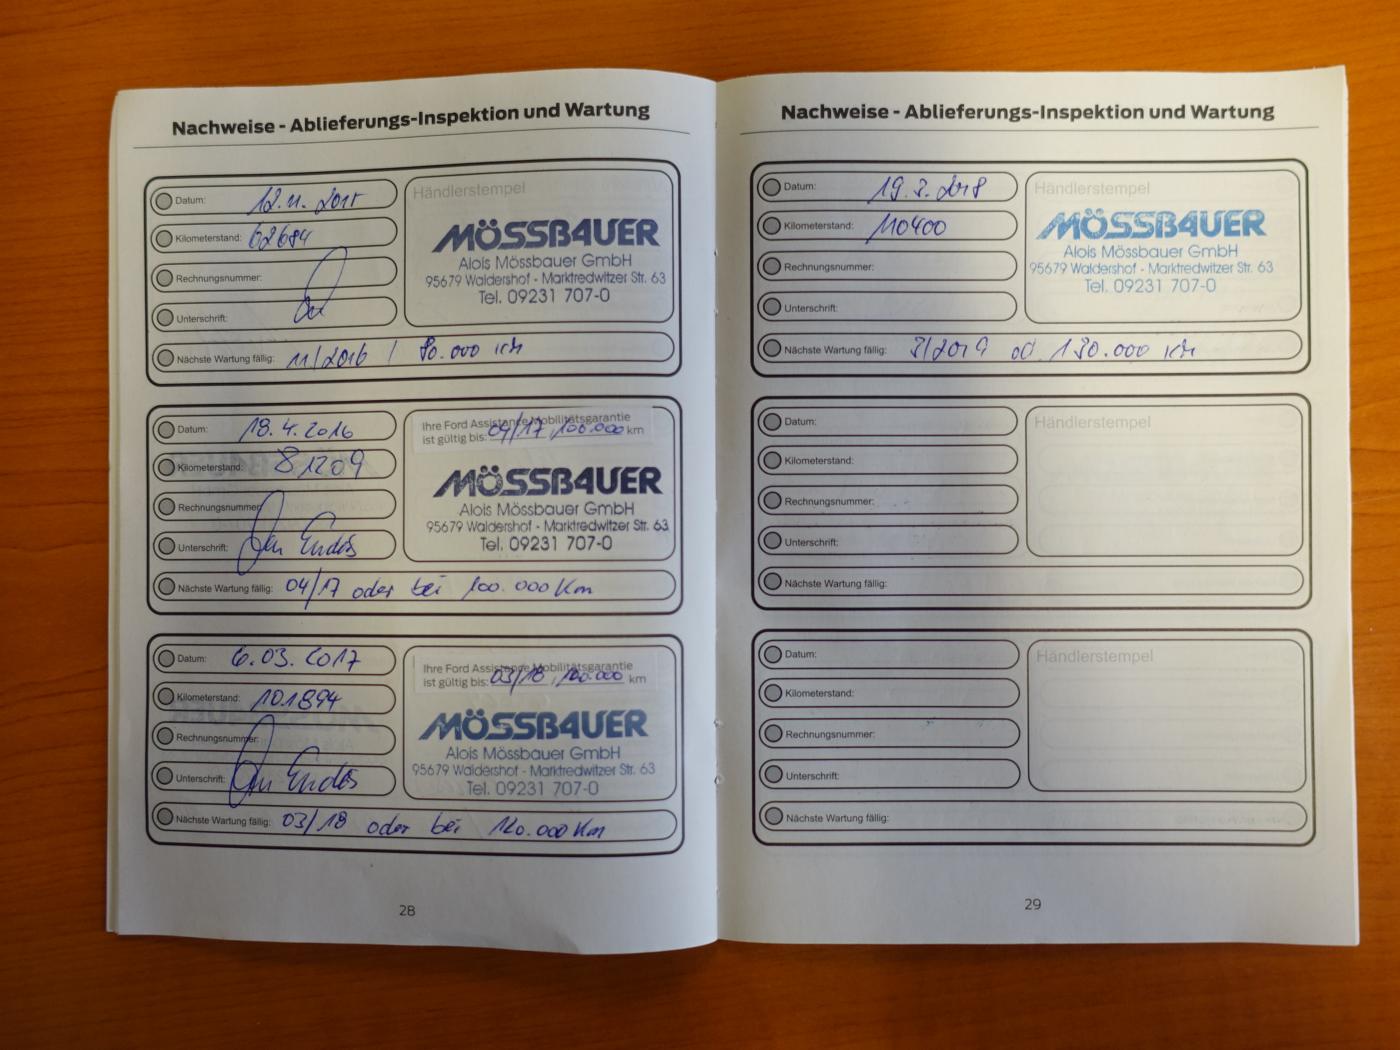 Nachweise - Ablieferungs-Inspektion und Wartung
Datum: 12.11.2015
Kilometerstand: 62684
Rechnungsnummer:
Unterschrift:
Nächste Wartung fällig: 11/2016 / 80.000 km
Händlerstempel
MÖSSBAUER
Alois Mössbauer GmbH
95679 Waldershof - Marktredwitzer Str. 63
Tel. 09231 707-0
Datum: 18.4.2016
Kilometerstand: 81209
Rechnungsnummer:
Unterschrift:
Nächste Wartung fällig: 04/17 oder bei 100.000 Km
Ihre Ford Assistance Mobilitätsgarantie
ist gültig bis: 04/17, 100.000 km
MÖSSBAUER
Alois Mössbauer GmbH
95679 Waldershof - Marktredwitzer Str. 63
Tel. 09231 707-0
Datum: 6.03.2017
Kilometerstand: 101894
Rechnungsnummer:
Unterschrift:
Nächste Wartung fällig: 03/18 oder bei 120.000 Km
Ihre Ford Assistance Mobilitätsgarantie
ist gültig bis: 03/18, 120.000 km
MÖSSBAUER
Alois Mössbauer GmbH
95679 Waldershof - Marktredwitzer Str. 63
Tel. 09231 707-0
28
Nachweise - Ablieferungs-Inspektion und Wartung
Datum: 19.3.2018
Kilometerstand: 110400
Rechnungsnummer:
Unterschrift:
Nächste Wartung fällig: 3/2019 od. 130.000 km
Händlerstempel
MÖSSBAUER
Alois Mössbauer GmbH
95679 Waldershof - Marktredwitzer Str. 63
Tel. 09231 707-0
Datum:
Kilometerstand:
Rechnungsnummer:
Unterschrift:
Nächste Wartung fällig:
Händlerstempel
Datum:
Kilometerstand:
Rechnungsnummer:
Unterschrift:
Nächste Wartung fällig:
Händlerstempel
29